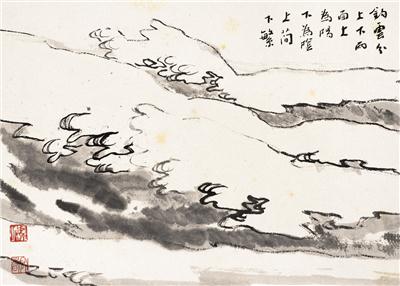 鈎雲分
上下兩
面上
為陽
下為陰
上简
下繁